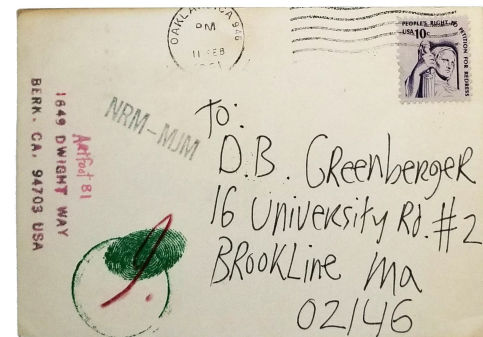 OAKLAND, CA 946
PM
11 FEB
1981
PEOPLE'S RIGHT TO PETITION FOR REDRESS
USA 10c
NRM-MJM
To:
D.B. Greenberger
16 University Rd. #2
Brookline Ma
02146
Artfoot 81
1649 DWIGHT WAY
BERK. CA, 94703 USA